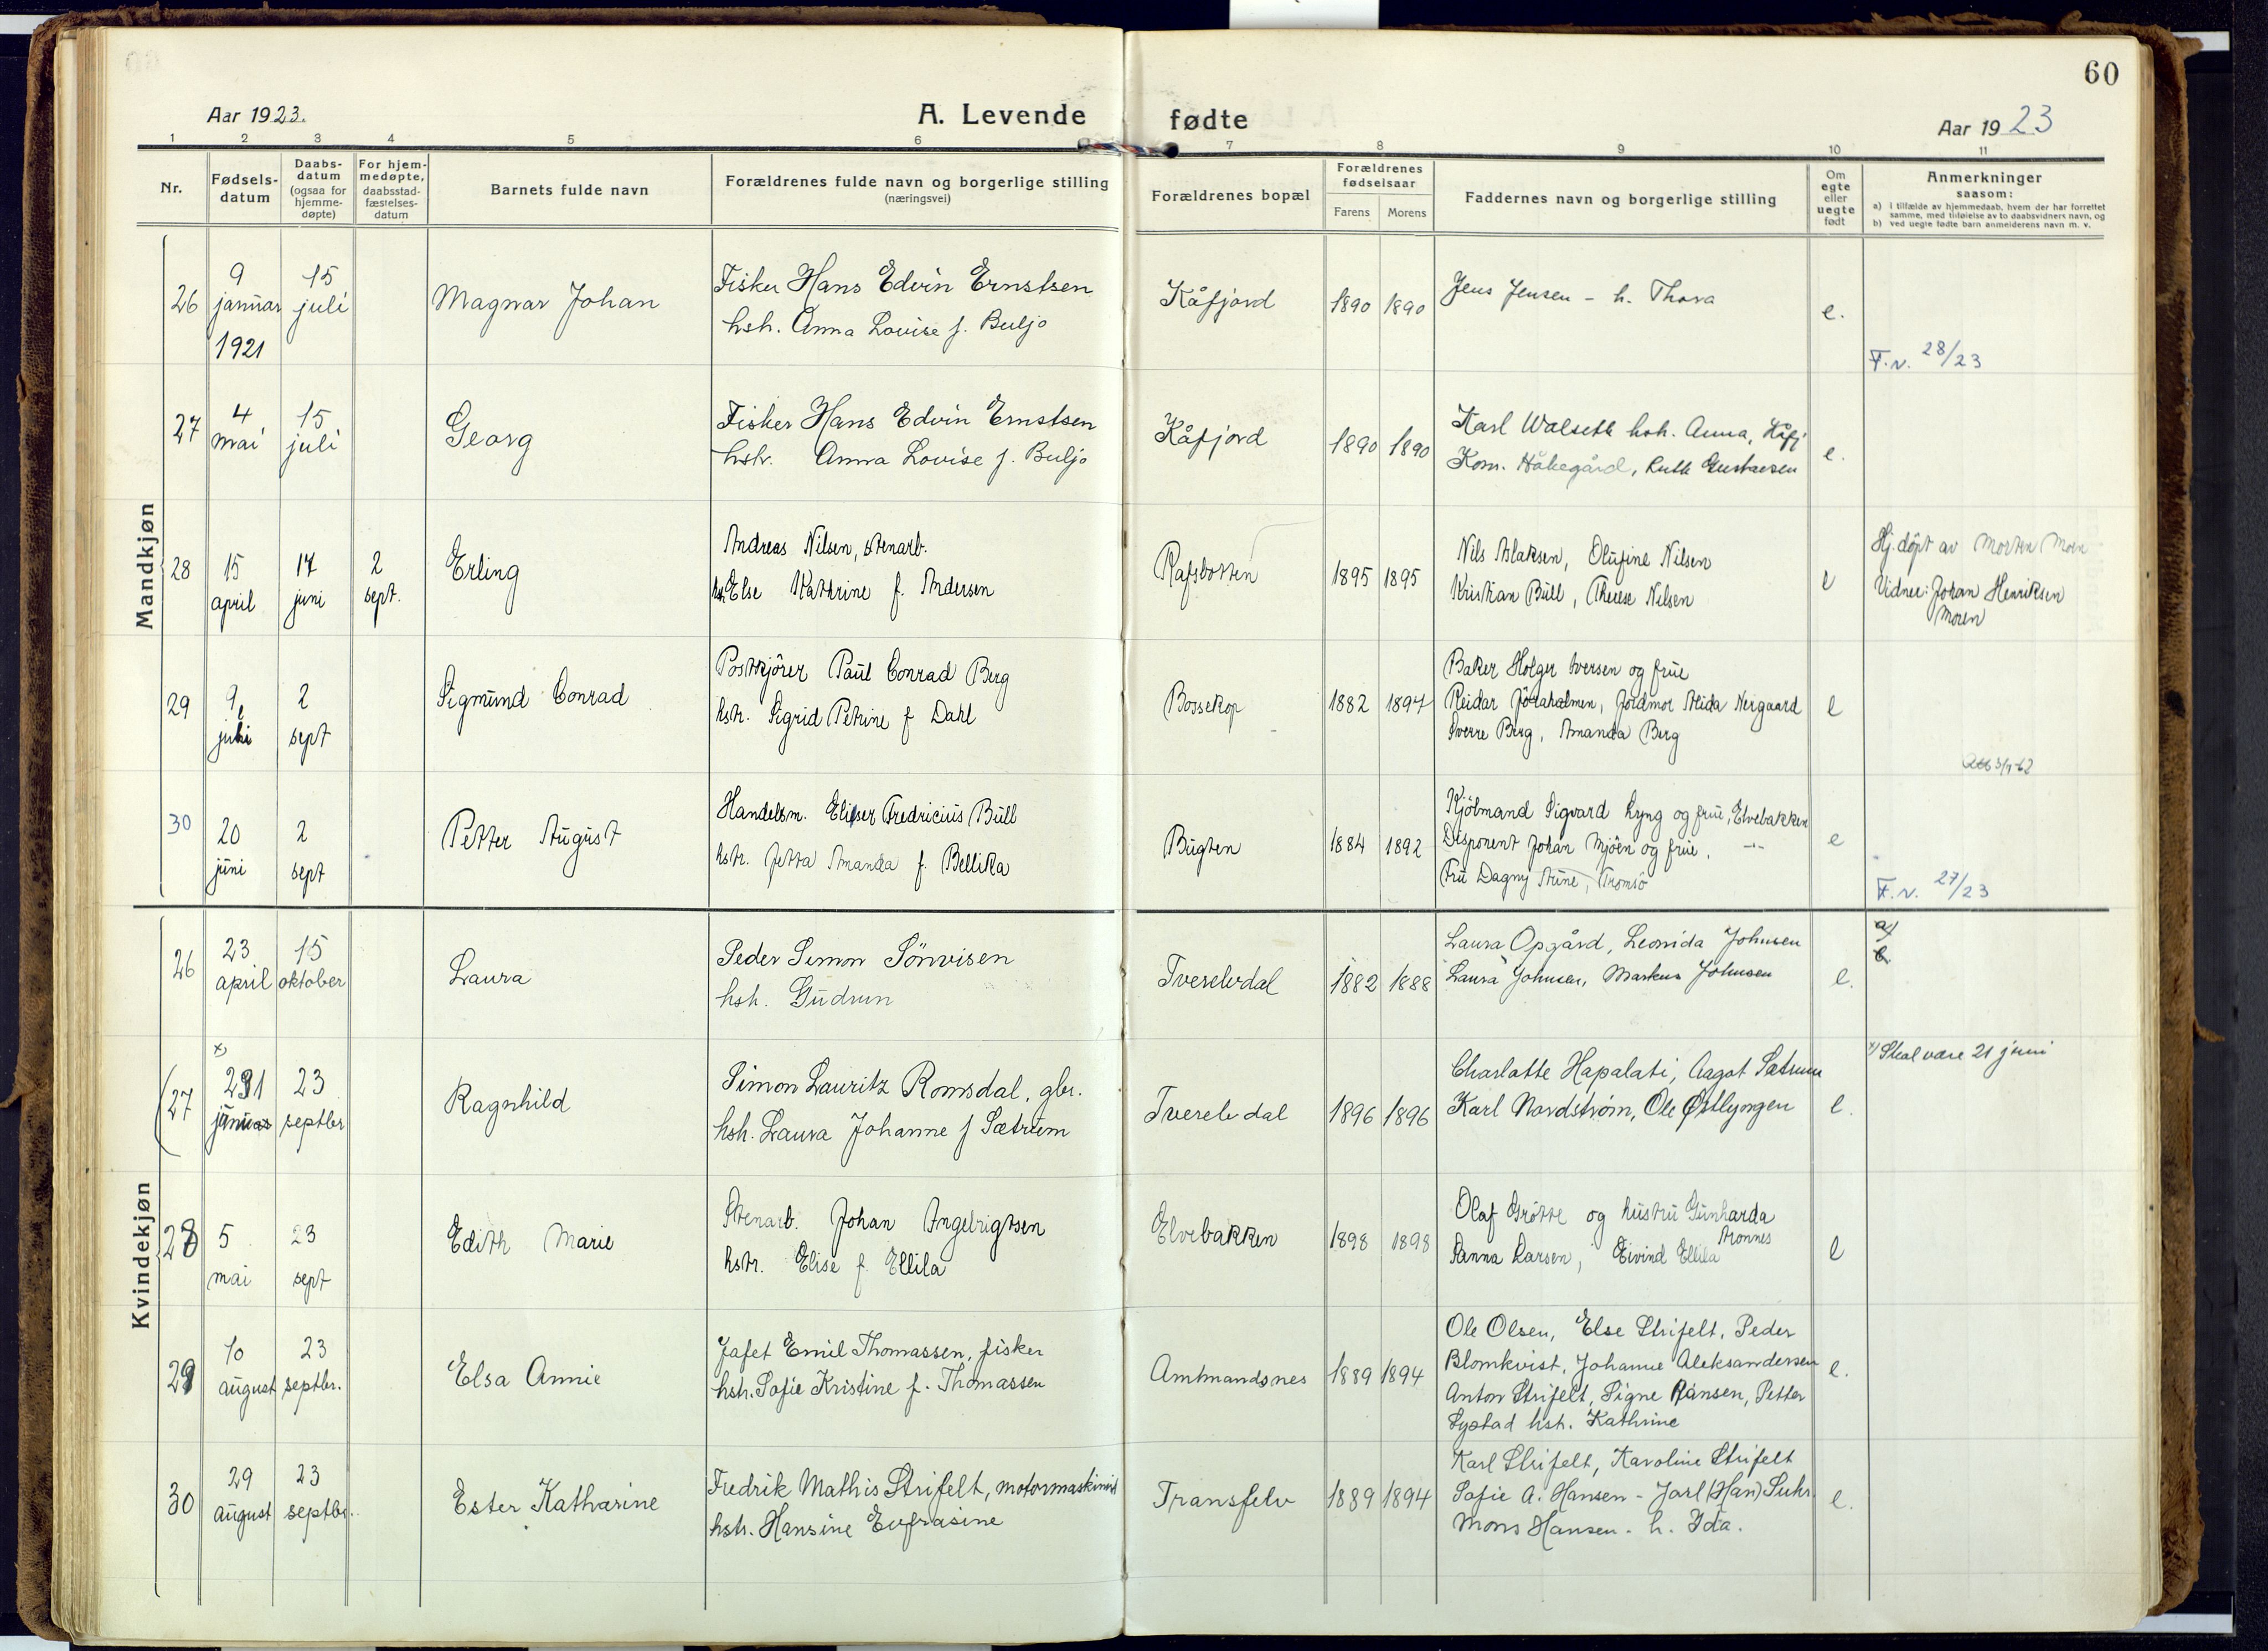 60
Aar 1923.
A. Levende fødte
Aar 1923
1 2 3 4 5 6 7 8 9 10 11
Nr.
Fødsels-
datum
Daabs-
datum
(ogsaa for
hjemme-
døpte)
For hjem-
medøpte,
daabsstad-
fæstelses-
datum
Barnets fulde navn
Forældrenes fulde navn og borgerlige stilling
(næringsvei)
Forældrenes bopæl
Forældrenes
fødselsaar
Farens Morens
Faddernes navn og borgerlige stilling
Om
egte
eller
uegte
født
Anmerkninger
saasom:
a) i tilfælde av hjemmedaab, hvem der har forrettet
samme, med tilføielse av to daabsvidners navn, og
b) ved uegte fødte barn anmelderens navn m. v.
Mandkjøn
26
9
januar
1921
15
juli
Magnar Johan
Fisker Hans Edvin Ernstsen
hsh. Anna Lovise f. Buljo
Kåfjord
1890 1890
Jens Jensen - h. Thora
e.
F.v. 28/23
27
4
mai
15
juli
Georg
Fisker Hans Edvin Ernstsen
hstr. Anna Lovise f. Buljo
Kåfjord
1890 1890
Karl Walseth hsh. Anna, Kåfj
Kom. Håkegård, Ruth Gustavsen
e.
28
15
april
17
juni
2
sept.
Erling
Andreas Nilsen, stenarb.
hstr Else Kathrine f. Andersen
Rafsbotten
1895 1895
Nils Aslaksen, Olufine Nilsen
Kristian Bull, Therese Nilsen
e
Hj.döpt av Morten Moen
Vidner: Johan Henriksen
Moren
29
9
juli
2
sept
Sigmund Conrad
Postkjörer Paul Conrad Berg
hstr. Sigrid Petrine f Dahl
Bossekop
1882 1897
Baker Holger Iversen og frue
Reidar Jöraholmen, Jordmor Alida Nergaard
Sverre Berg, Amanda Berg
e
30
20
juni
2
sept
Petter August
Handelsm. Elieser Fredricius Bull
hstr. Jetta Amanda f. Bellika
Bugten
1884 1892
Kjöbmand Sigvard Lyng og frue, Elvebakken
Disponent Johan Mjöen og frue, -"-
Fru Dagny Aune, Tromsö
e
F.v. 27/23
Kvindekjøn
26
23
april
15
oktober
Laura
Peder Simon Sönvisen
hsh. Gudrun
Tverelvdal
1882 1888
Laura Opgård, Leonida Johnsen
Laura Johnsen, Markus Johnsen
e.
27
x)
21
juni
23
septbr
Ragnhild
Simon Lauritz Romsdal, gbr.
hsh. Laura Johanne f Sætrum
Tverelvdal
1896 1896
Charlotte Hapalati, Aagot Sætrum
Karl Nordström, Ole Østlyngen
e.
x) Skal være 21 juni
28
5
mai
23
sept
Edith Marie
Stenarb. Johan Ingebrigtsen
hstr. Elise f. Ellila
Elvebakken
1898 1898
Olaf Grötte og hustru Gunharda
Sanna Larsen, Eivind Ellila
e
29
10
august
23
septbr.
Elsa Annie
Jafet Emil Thomassen, fisker
hstr. Sofie Kristine f. Thomassen
Amtmandsnes
1889 1894
Ole Olsen, Else Strifelt, Peder
Blomkvist, Johanne Aleksandersen
Anton Strifelt, Signe Hansen, Petter
Systad hst. Kathrine
e.
30
29
august
23
septbr.
Ester Katharine
Fredrik Mathis Strifelt, motormaskinist
hstr. Hansine Eufrasine
Transfelv
1889 1894
Karl Strifelt, Karoline Strifelt
Sofie A. Hansen - Jarl (Han) Suhr.
Mons Hansen - h. Ida.
e.